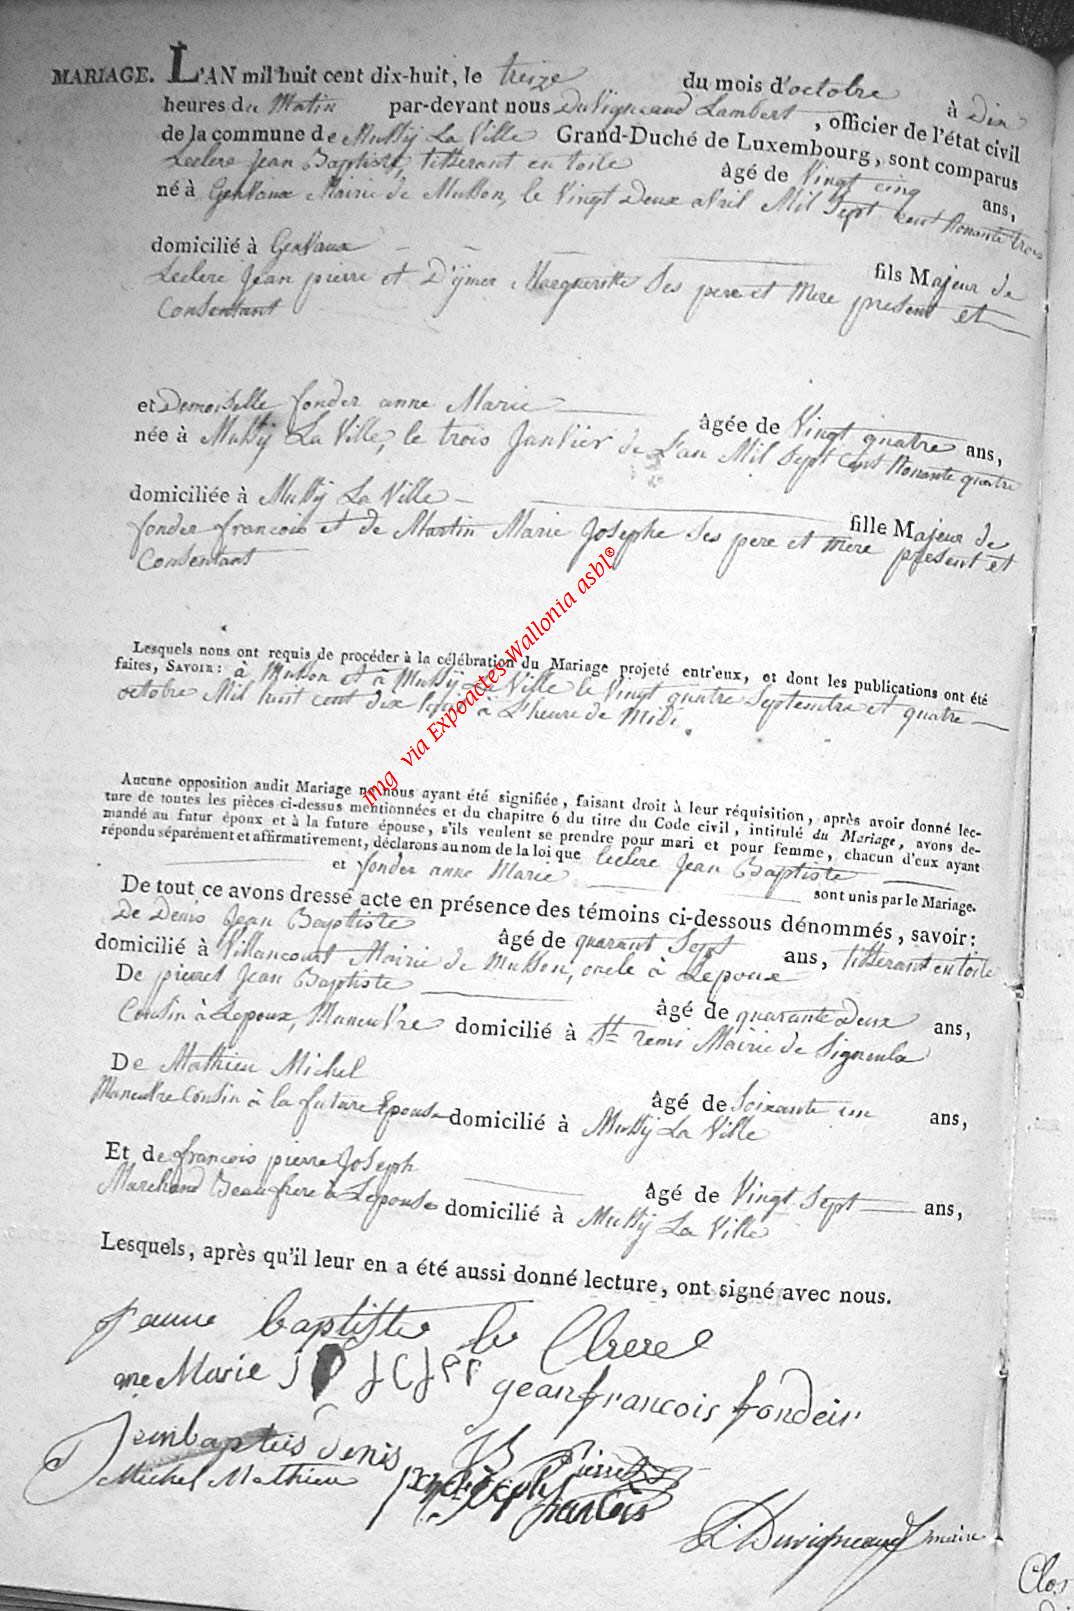 MARIAGE. L'AN mil huit cent dix-huit, le treize du mois d'octobre à Dix
heures du Matin par-devant nous DuVigneaud Lambert, officier de l'état civil
de la commune de Mussÿ La Ville Grand-Duché de Luxembourg, sont comparus
Leclere Jean Baptiste, titterant en toile âgé de Vingt cinq ans,
né à Gervaux Mairie de Musson, le Vingt Deux aVril Mil Sept cent Nonante trois
domicilié à Gervaux fils Majeur de
Leclere Jean pierre et D'ÿmer Margueritte Ses pere et Mere present et
Consentant
et Demoiselle fonder anne Marie âgée de Vingt quatre ans,
née à Mussÿ La Ville, le trois Janvier de L'an Mil Sept Cent Nonante quatre
domiciliée à Mussÿ La Ville fille Majeur de
fonder francois et de Martin Marie Josephe Ses pere et mere present et
Consentant
Lesquels nous ont requis de procéder à la célébration du Mariage projeté entr'eux, et dont les publications ont été
faites, SAVOIR: à Musson et à Mussÿ La Ville le Vingt quatre Septembre et quatre
octobre Mil huit cent dix huit à L'heure de Midi.
Aucune opposition audit Mariage ne nous ayant été signifiée, faisant droit à leur réquisition, après avoir donné lec-
ture de toutes les pièces ci-dessus mentionnées et du chapitre 6 du titre du Code civil, intitulé du Mariage, avons de-
mandé au futur époux et à la future épouse, s'ils veulent se prendre pour mari et pour femme, chacun d'eux ayant
répondu séparément et affirmativement, déclarons au nom de la loi que leclere Jean Baptiste
et fonder anne Marie sont unis par le Mariage.
De tout ce avons dressé acte en présence des témoins ci-dessous dénommés, savoir:
De Denis Jean Baptiste âgé de quarant Sept ans, titterant en toile
domicilié à Villancourt Mairie de Musson, oncle à Lepoux
De pierret Jean Baptiste âgé de quarante Deux ans,
Cousin à Lepoux, Maneuvre domicilié à St remi Mairie de Signeulx
De Mathieu Michel âgé de Soixante un ans,
Maneuvre Cousin à la future Epouse domicilié à Mussÿ La Ville
Et de francois pierre Joseph âgé de Vingt Sept ans,
Marchand Beau frere à Lepouse domicilié à Mussÿ La Ville
Lesquels, après qu'il leur en a été aussi donné lecture, ont signé avec nous.
Jeanne baptiste le Clere
ane Marie
gean francois fondeir
Jeanbaptis denis
JB Pierret
Michel Mathieu
pierre Joseph francois
L: Duvigneaud maire
Clos
img via Expoactes-Wallonia asbl®